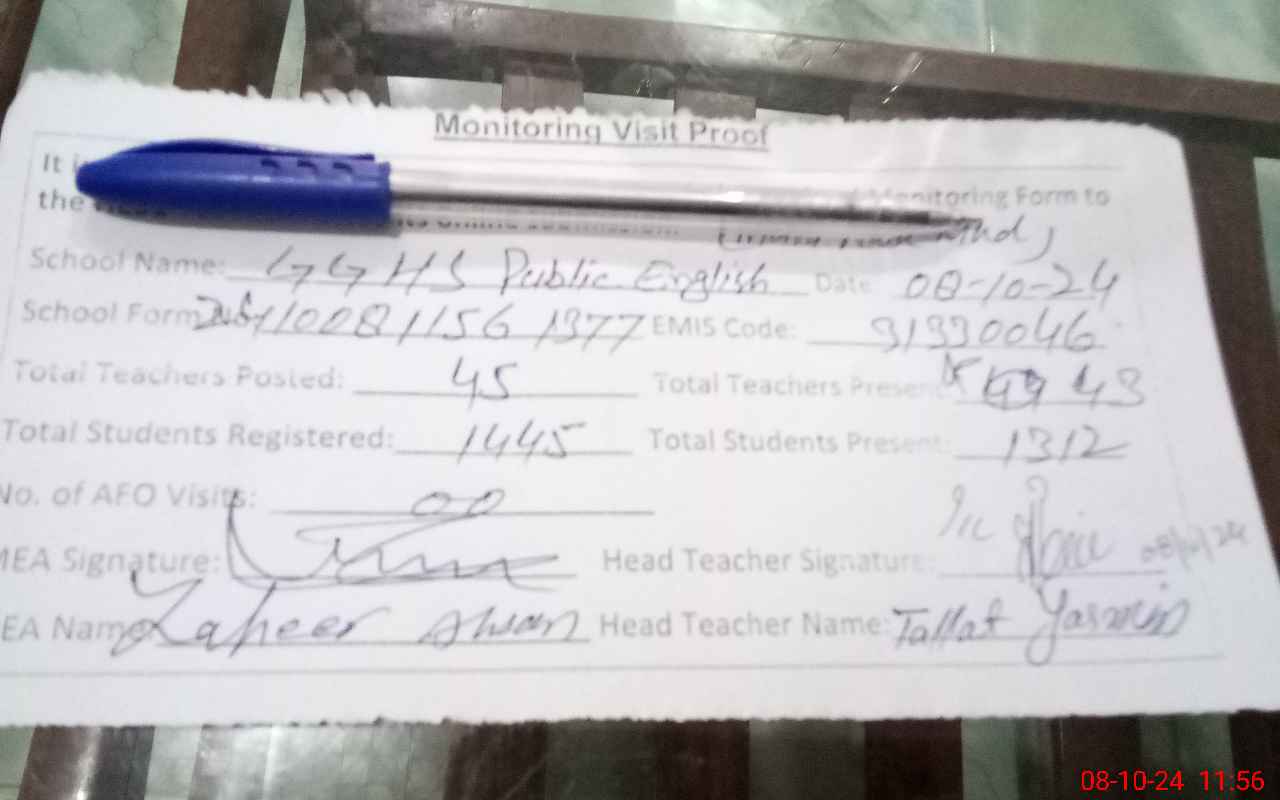 Monitoring Visit Proof
It Monitoring Form to
the
School Name: GGHS Public English Date 08-10-24
School Form EMIS Code: 31330046
Total Teachers Posted: 45 Total Teachers Present 43
Total Students Registered: 1445 Total Students Present: 1312
No. of AEO Visits: 00
MEA Signature: Head Teacher Signature:
EA Name Zaheer Head Teacher Name: Tallat Yasmin
08-10-24 11:56